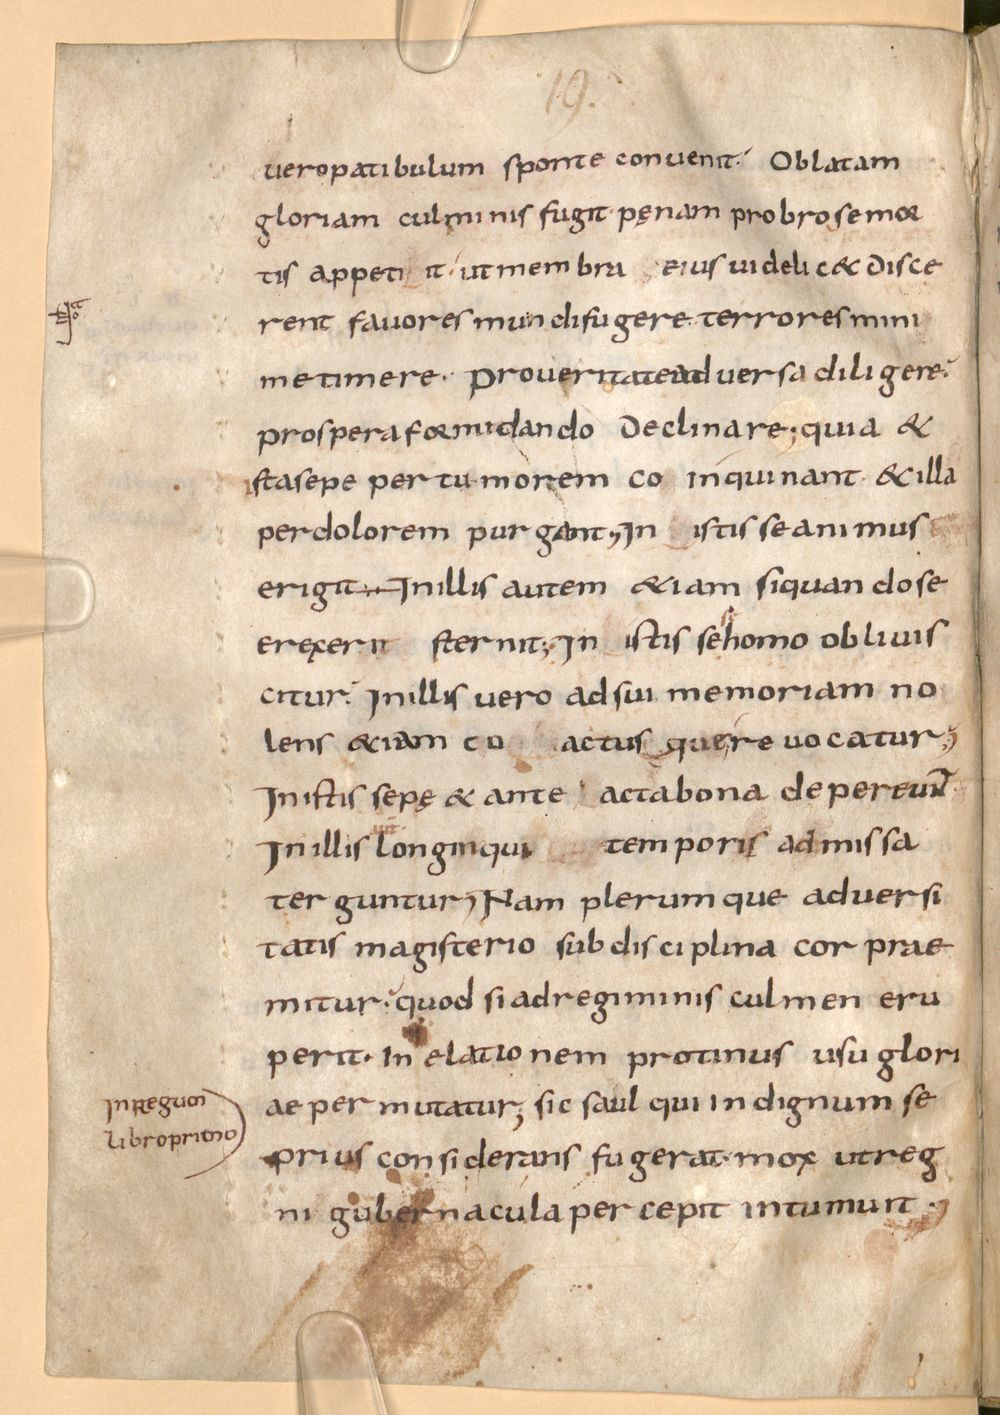 19.
uero patibulum sponte conuenit. Oblatam
gloriam culminis fugit. pęnam probrose mor
tis appetiit. ut membra eius uidelic& disce
rent fauores mundi fugere. terrores mini
me timere. pro ueritate aduersa diligere.
prospera formidando declinare; quia &
ista sepe per tumorem coinquinant. & illa
per dolorem purgant; In istis se animus
erigit; In illis autem &iam si quando se
erexerit sternit; In istis se homo obliuis
citur. In illis uero ad sui memoriam no
lens &iam coactus que reuocatur;
In istis sepę & ante acta bona depereunt.
In illis longinqui temporis admissa
terguntur; Nam plerumque aduersi
tatis magisterio sub disciplina cor prae
mitur. quod si ad regiminis culmen eru
perit. In elationem protinus usu glori
In Regum
libro primo
ae permutatur; sic saul qui indignum se
prius considerans fugerat. mox ut reg
ni gubernacula percepit intumuit;